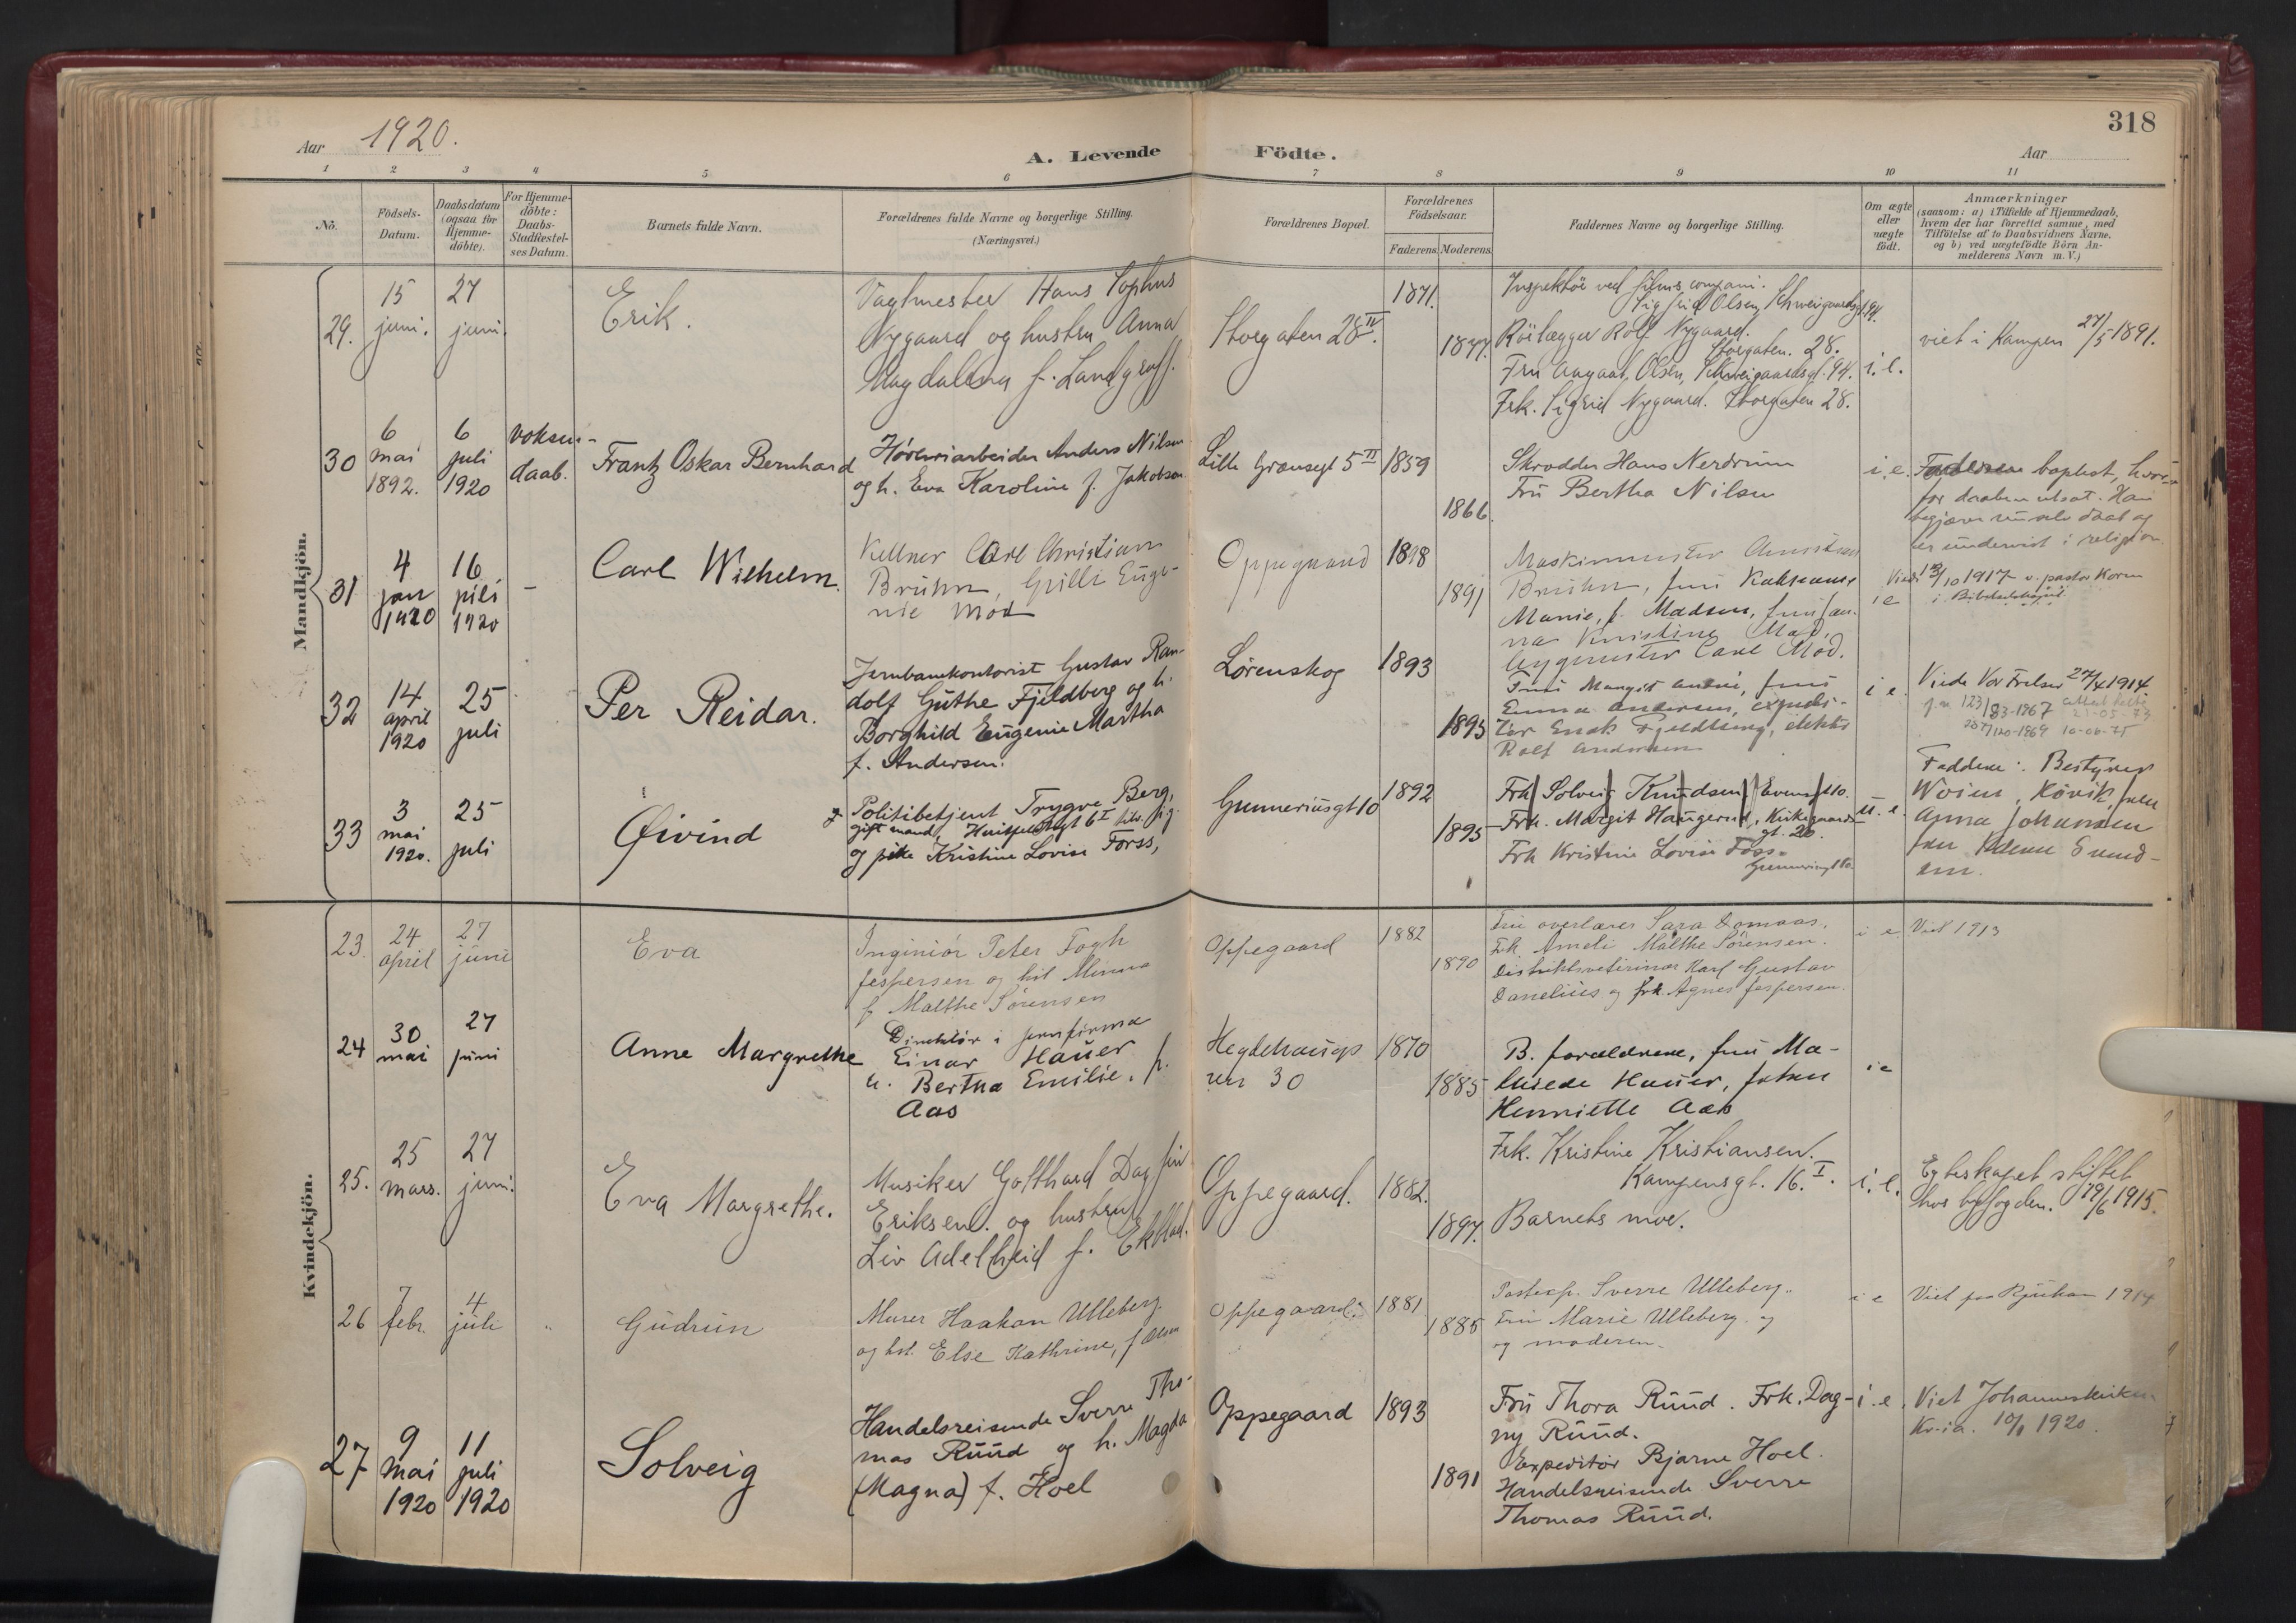 318
Aar 1920.
A. Levende Födte.
Aar
1 2 3 4 5 6 7 8 9 10 11
No.
Födsels-Datum.
Daabsdatum (ogsaa for Hjemme-döbte).
For Hjemme-döbte: Daabs-Stadfæstel-ses Datum.
Barnets fulde Navn.
Forældrenes fulde Navne og borgerlige Stilling.
(Næringsvei.)
Forældrenes Bopæl.
Forældrenes Födselsaar.
Faderens. Moderens.
Faddernes Navne og borgerlige Stilling.
Om ægte eller uægte födt.
Anmærkninger
(saasom: a) i Tilfælde af Hjemmedaab,
hvem der har forrettet samme, med
Tilföielse af to Daabsvidners Navne,
og b) ved uægtefödte Börn An-
melderens Navn m. V.)
Mandkjön.
29.
15 juni.
27 juni.
Erik.
Vagtmester Hans Sophus
Nygaard og hustru Anna
Magdalena f. Landgraff.
Storgaten 28 IV.
1871.
1877.
Inspektör ved films compani.
Sigfrid Olsen, Schweigaardsgt. 94.
Rörlægger Rolf Nygaard.
Storgaten. 28.
Fru Aagaat Olsen, Schweigaardsgt. 94.
Frk. Sigrid Nygaard. Storgaten 28.
i. e.
viet i Kampen 27/5 1891.
30
6 mai 1892.
6 juli 1920
voksen-
daab.
Frantz Oskar Bernhard
Høveriarbeider Anders Nilsen
og h. Eva Karoline f. Jakobsen
Lille Grænsegt 5 II
1859
1866.
Skrædder Hans Nerdrum
Fru Bertha Nilsen
i. e.
Faderen baptist, hvor-
for daaben utsat. Han
begjærer nu selv daab og
er undervist i religion.
31
4 jan 1920
16 juli 1920
-
Carl Wilhelm.
Kellner Carl Christian
Bruhn, Grilli Euge-
nie Mod
Oppegaard
1891
Maskinmester Christian
Bruhn, fru Kathrine
Marie, f. Madsen, fru Jan-
na Kristine Mod,
Bygmester Carl Mod.
i e
Viet 13/10 1917 v. pastor Koren
32
14 april 1920
25 juli
Per Reidar.
Jernbanekontorist Gustav Ran-
dolf Guthe Fjeldberg og h.
Borghild Eugenie Martha
f. Andersen.
Lørenskog
1893
1895
Fru Margit
Emma Andersen, expedi-
Rolf Andersen
i e.
Viede Vor Frelser 27/4 1914
123/83-1967
21-05-73
10-06-75
33
3 mai 1920.
25 juli
Øivind
Politibetjent Trygve Berg,
gift mand,
og pike Kristine Lovise Forss,
Gunneriusgt 10
1892
1895
Frk Solveig Knudsen
Frk. Margit Haugerud, Kirkegaards-
gt. 20.
Frk Kristine Lovise Foss.
Gunneriusgt 10.
u. e.
Faddere: Bestyrer
Woien, Røvik, fru
Anna Johansen
fru
Kvindekjön.
23.
24 april
27 juni
Eva
Ingeniör Peter Fogh
Jespersen og hst Minna
f. Malthe Sörensen
Oppegaard
1882
1890
Fru overlærer Sara Aamaas,
Frk. Ameli Malthe Sörensen.
Distriktsveterinær Karl Gustav
Danelius og frk. Agnes Jespersen.
i e.
Viet 1913
24
30 mai
27 juni
Anne Margrethe
Direktör i jernfirma
Einar Hauer
h. Bertha Emilie, f.
Aas
Hegdehaugs
vn 30
1870
1885
B. forældrene, fru Ma-
Hauer, frøken
Henriette Aas
i e
25.
25 mars.
27 juni.
Eva Margrethe.
Musiker Gotthard Dagfin
Eriksen. og hustru
Liv Adelheid f. Ekblad.
Oppegaard.
1882.
1897.
Frk. Kristine Kristiansen.
Kampensgt. 16. I.
Barnets mor.
i. e.
Egteskapet stiftet
hos byfogden. 19/6 1915.
26
7 febr.
4 juli
"
Gudrun
Murer Haakon Ulleberg.
og hst. Else Kathrine, f Olsen
Oppegaard.
1881
1885
Postexp. Sverre Ulleberg..
Fru Marie Ulleberg. og
og moderen.
i e
Viet paa Rjukan 1914
27
9 mai 1920
11 juli 1920
Solveig
Handelsreisende Sverre Tho-
mas Ruud og h. Magda
(Magna) f. Hoel
Oppegaard
1893
1891
Fru Thora Ruud. Frk. Dag-
ny Ruud.
Expeditör Bjarne Hoel.
Handelsreisende Sverre
Thomas Ruud.
i. e.
Viet Johanneskirken
Kr-ia. 1920.